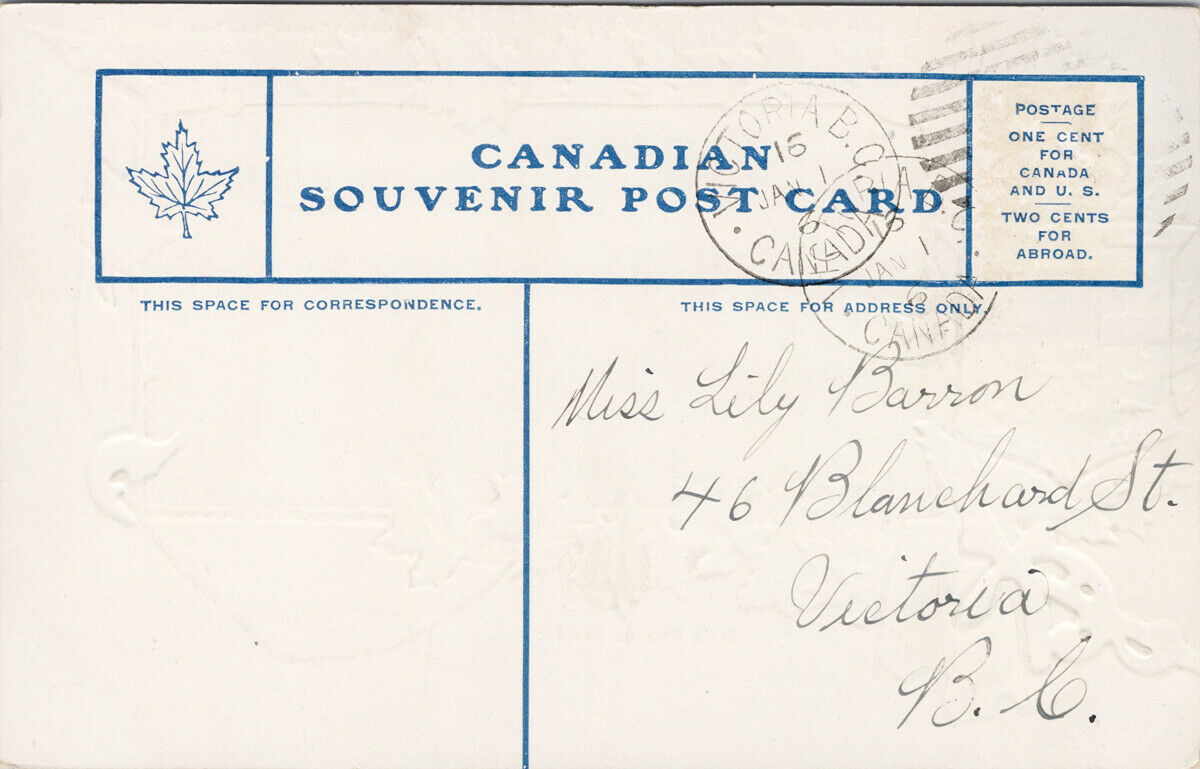 CANADIAN
SOUVENIR POST CARD
POSTAGE
ONE CENT
FOR
CANADA
AND U. S.
TWO CENTS
FOR
ABROAD.
VICTORIA B.C.
16
JAN 1
6
CANADA
RIA
16
JAN 1
6
CANADA
THIS SPACE FOR CORRESPONDENCE.
THIS SPACE FOR ADDRESS ONLY.
Miss Lily Barron
46 Blanchard St.
Victoria
B. C.